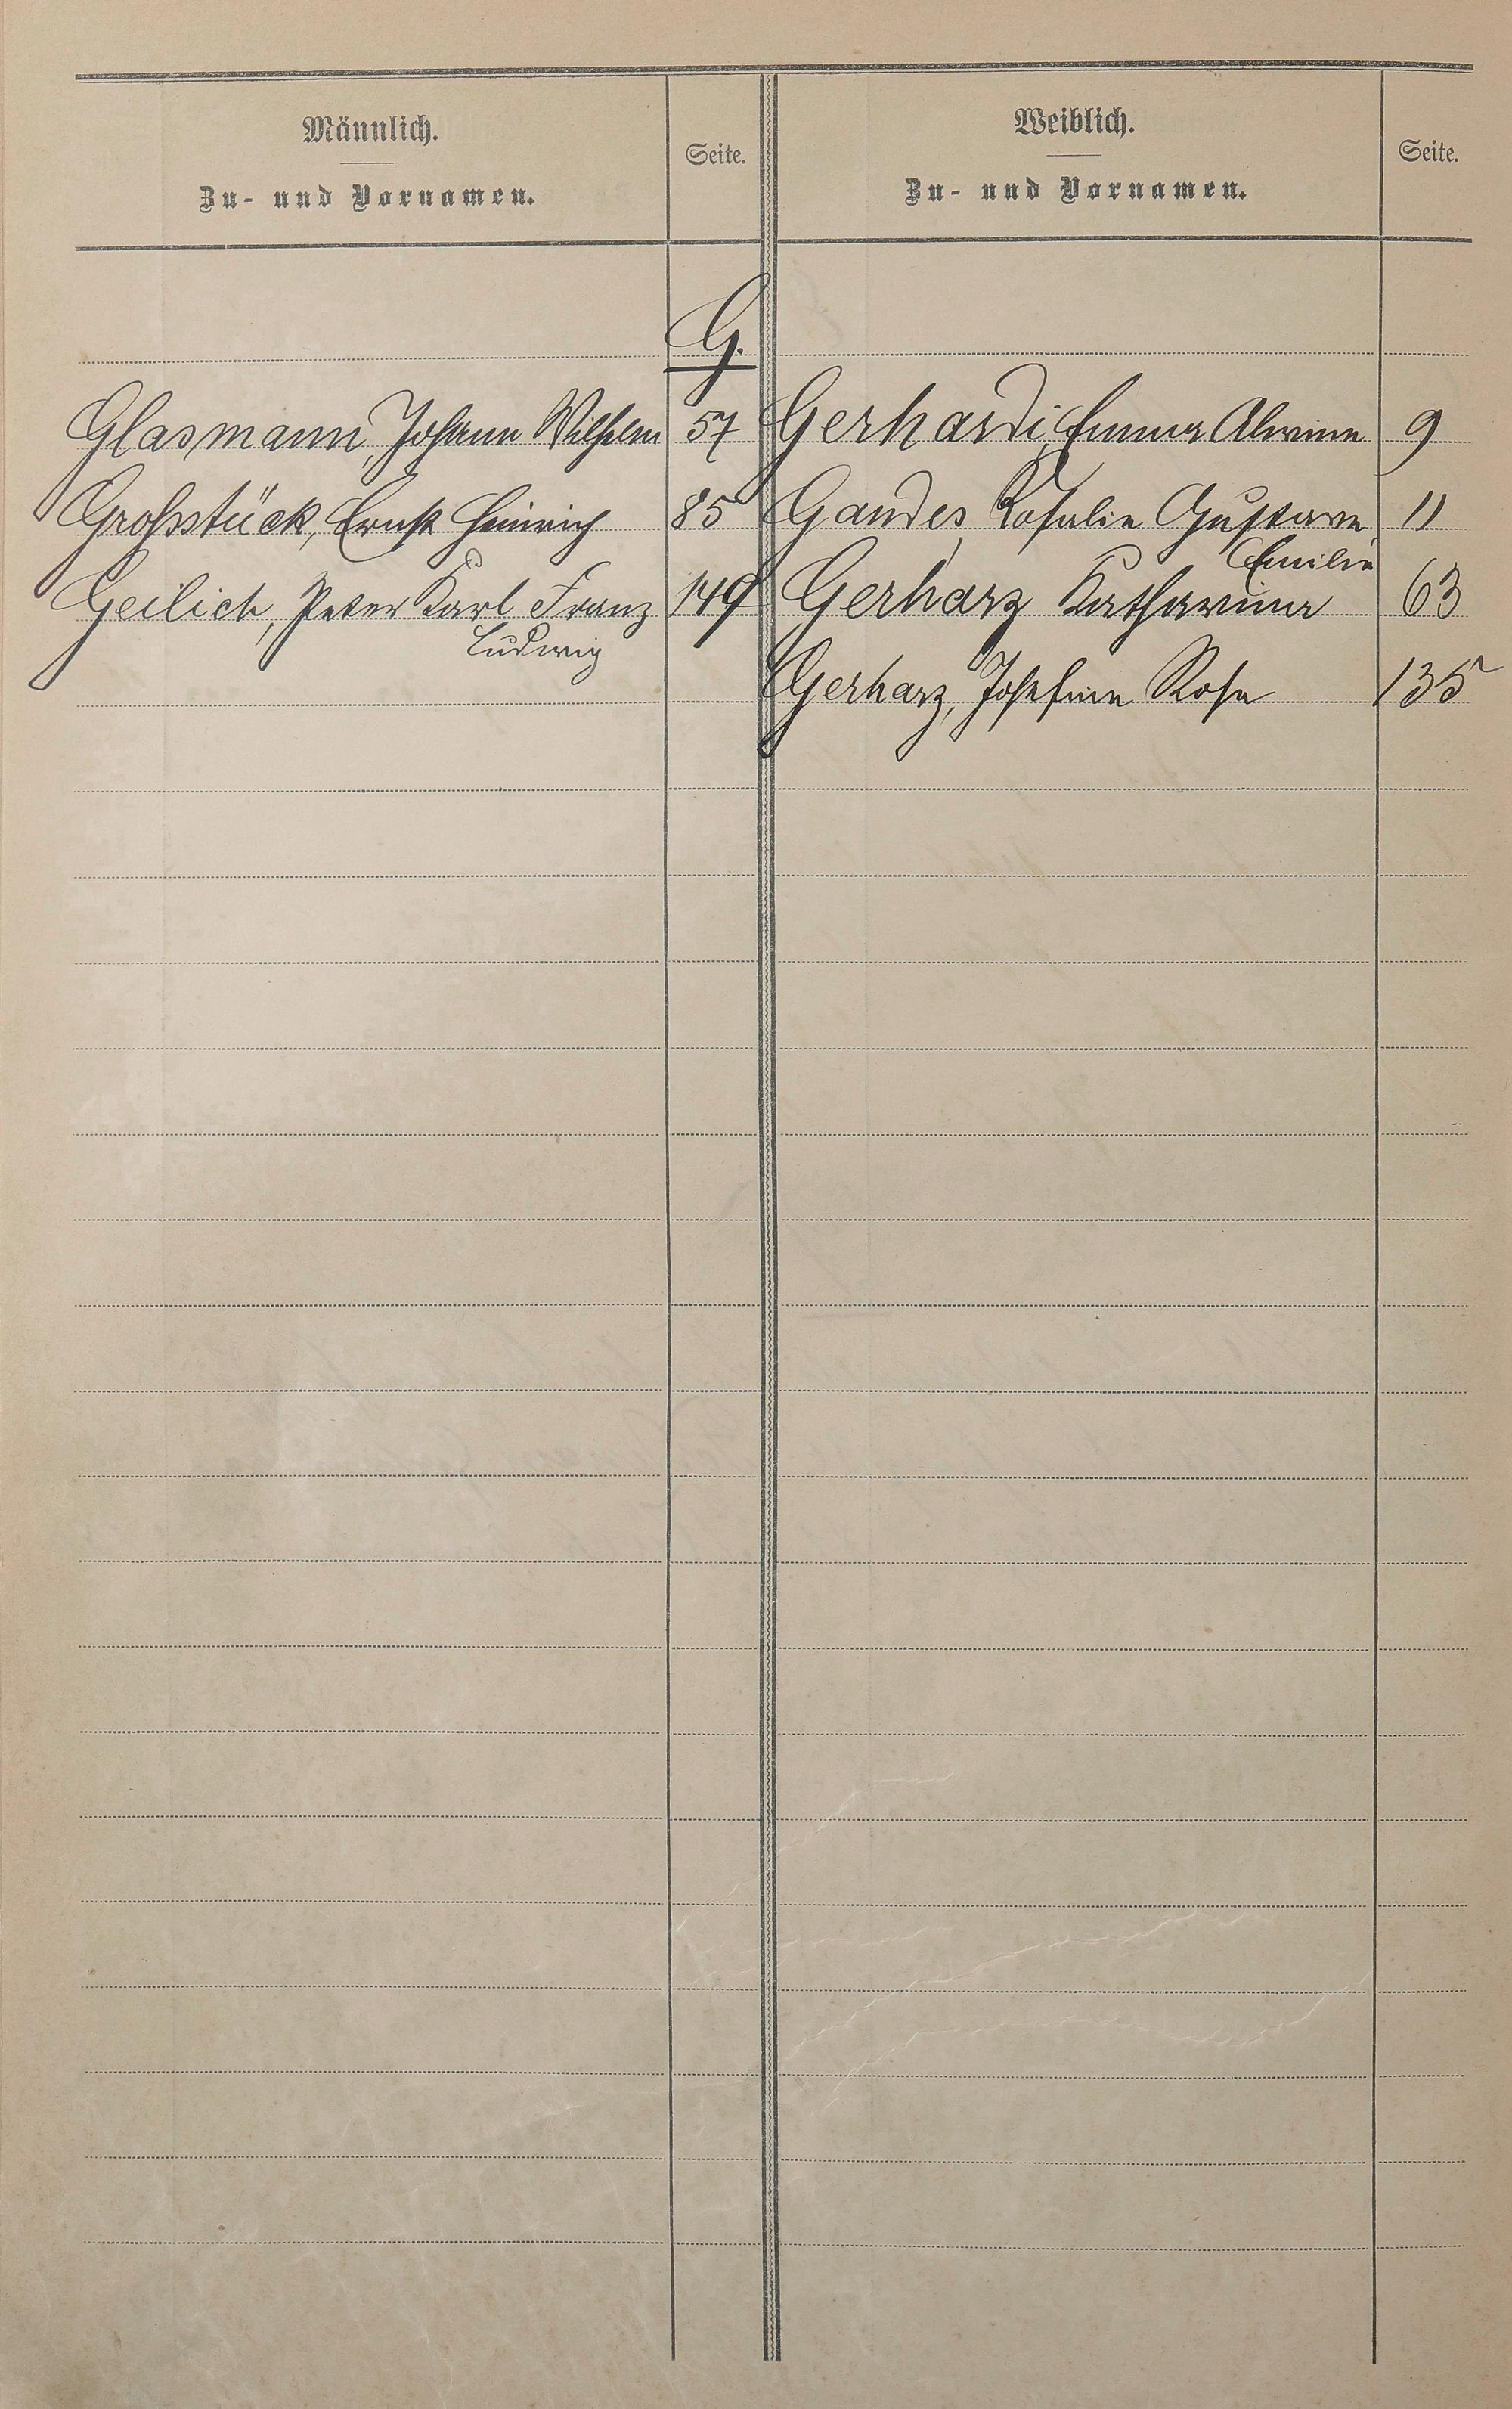 Männlich.
Zu- und Vornamen.
Seite.
Weiblich.
Zu- und Vornamen.
Seite.
G.
Glasmann, Johann Wilhelm 57
Gerhardi, Emma Alwine 9
Großstück, Ernst Heinrich 85
Gandes, Rosalie Gustave 11
Emilie
Geilich, Peter Karl Franz 149
Ludwig
Gerharz Katharina 63
Gerharz, Josefine Rosa 135